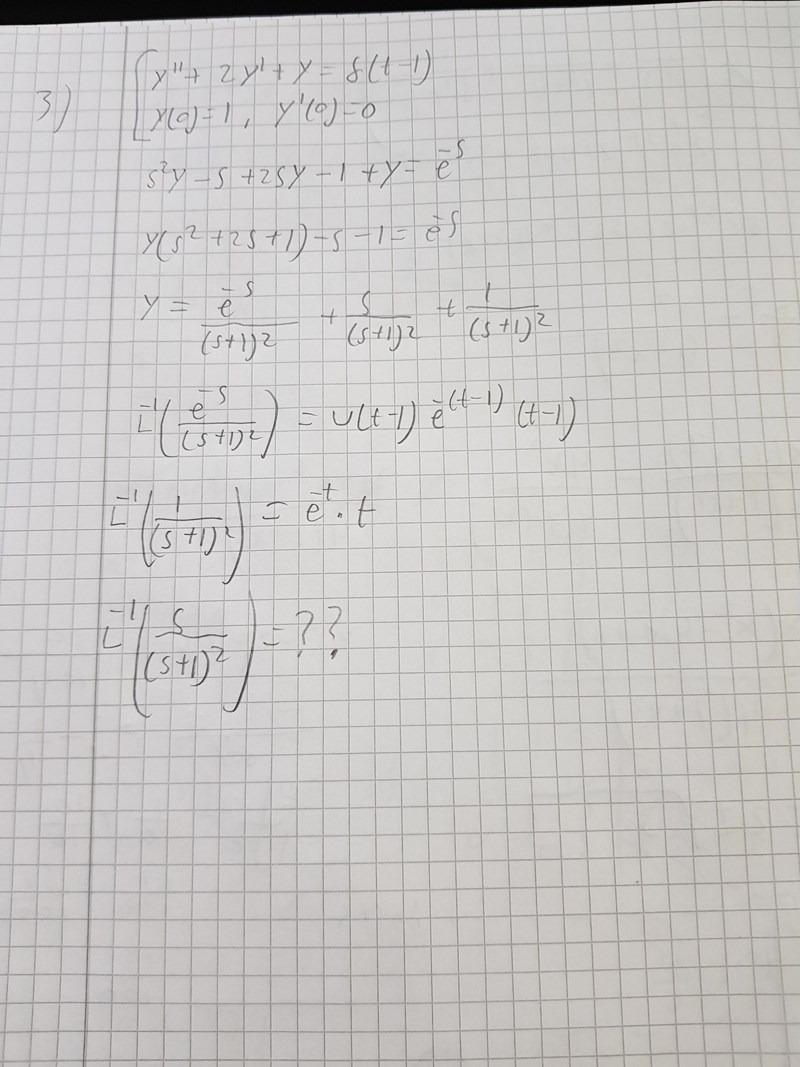 3) y'' + 2y' + y = δ(t-1)
y(0)=1, y'(0)=0
s²Y - s + 2sY - 1 + Y = e^{-s}
Y(s² + 2s + 1) - s - 1 = e^{-s}
Y = e^{-s}/(s+1)² + s/(s+1)² + 1/(s+1)²
L^{-1}(e^{-s}/(s+1)²) = u(t-1) e^{-(t-1)} (t-1)
L^{-1}(1/(s+1)²) = e^{-t} · t
L^{-1}(s/(s+1)²) = ??